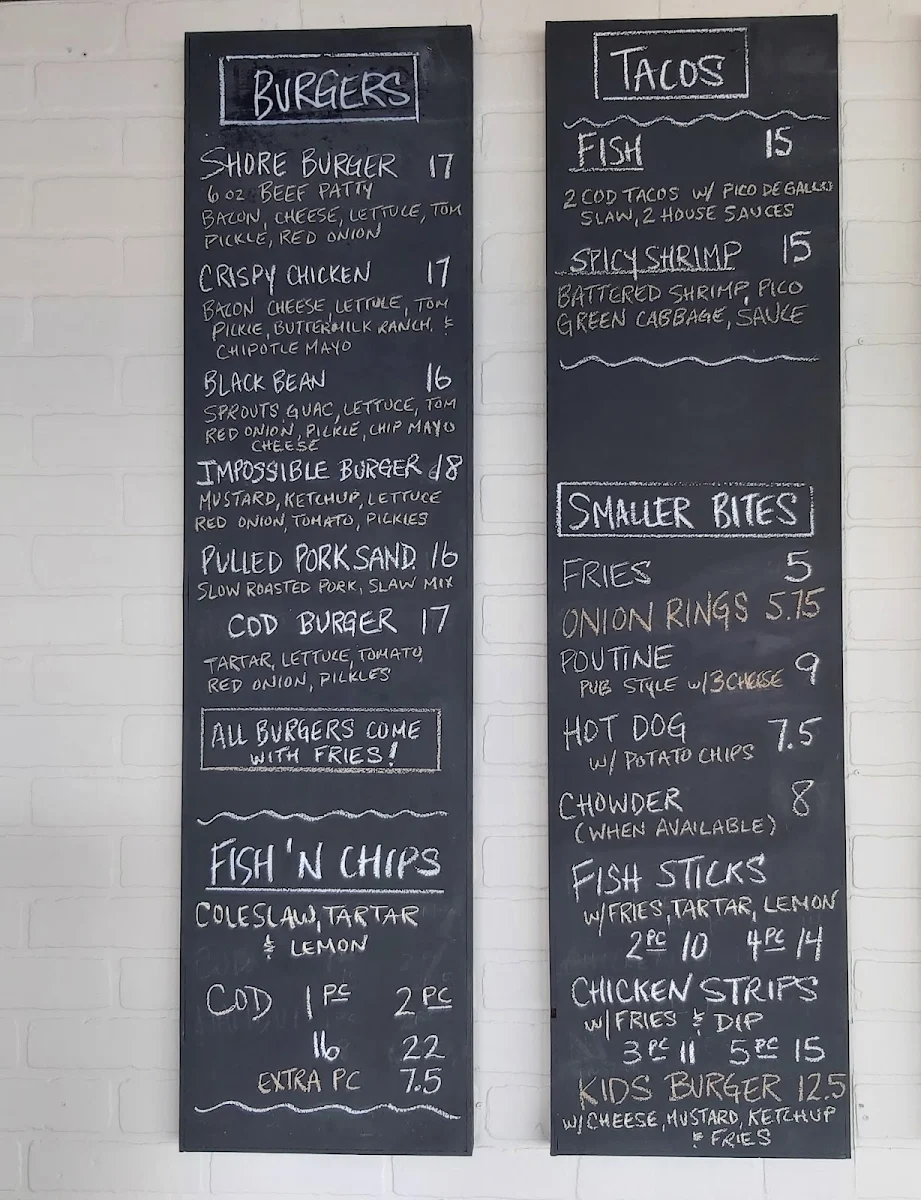 BURGERS
SHORE BURGER 17
6 OZ BEEF PATTY
BACON, CHEESE, LETTUCE, TOM
PICKLE, RED ONION
CRISPY CHICKEN 17
BACON CHEESE, LETTUCE, TOM
PICKLE, BUTTERMILK RANCH, &
CHIPOTLE MAYO
BLACK BEAN 16
SPROUTS, GUAC, LETTUCE, TOM
RED ONION, PICKLE, CHIP MAYO
CHEESE
IMPOSSIBLE BURGER 18
MUSTARD, KETCHUP, LETTUCE
RED ONION, TOMATO, PICKLES
PULLED PORK SAND. 16
SLOW ROASTED PORK, SLAW MIX
COD BURGER 17
TARTAR, LETTUCE, TOMATO,
RED ONION, PICKLES
ALL BURGERS COME
WITH FRIES!
FISH 'N CHIPS
COLESLAW, TARTAR
& LEMON
COD 1 PC 2 PC
16 22
EXTRA PC 7.5
TACOS
FISH 15
2 COD TACOS W/ PICO DE GALLO
SLAW, 2 HOUSE SAUCES
SPICY SHRIMP 15
BATTERED SHRIMP, PICO
GREEN CABBAGE, SAUCE
SMALLER BITES
FRIES 5
ONION RINGS 5.75
POUTINE 9
PUB STYLE W/ 3 CHEESE
HOT DOG 7.5
W/ POTATO CHIPS
CHOWDER 8
(WHEN AVAILABLE)
FISH STICKS
W/FRIES, TARTAR, LEMON
2 PC 10 4 PC 14
CHICKEN STRIPS
W/FRIES & DIP
3 PC 11 5 PC 15
KIDS BURGER 12.5
W/CHEESE, MUSTARD, KETCHUP
& FRIES